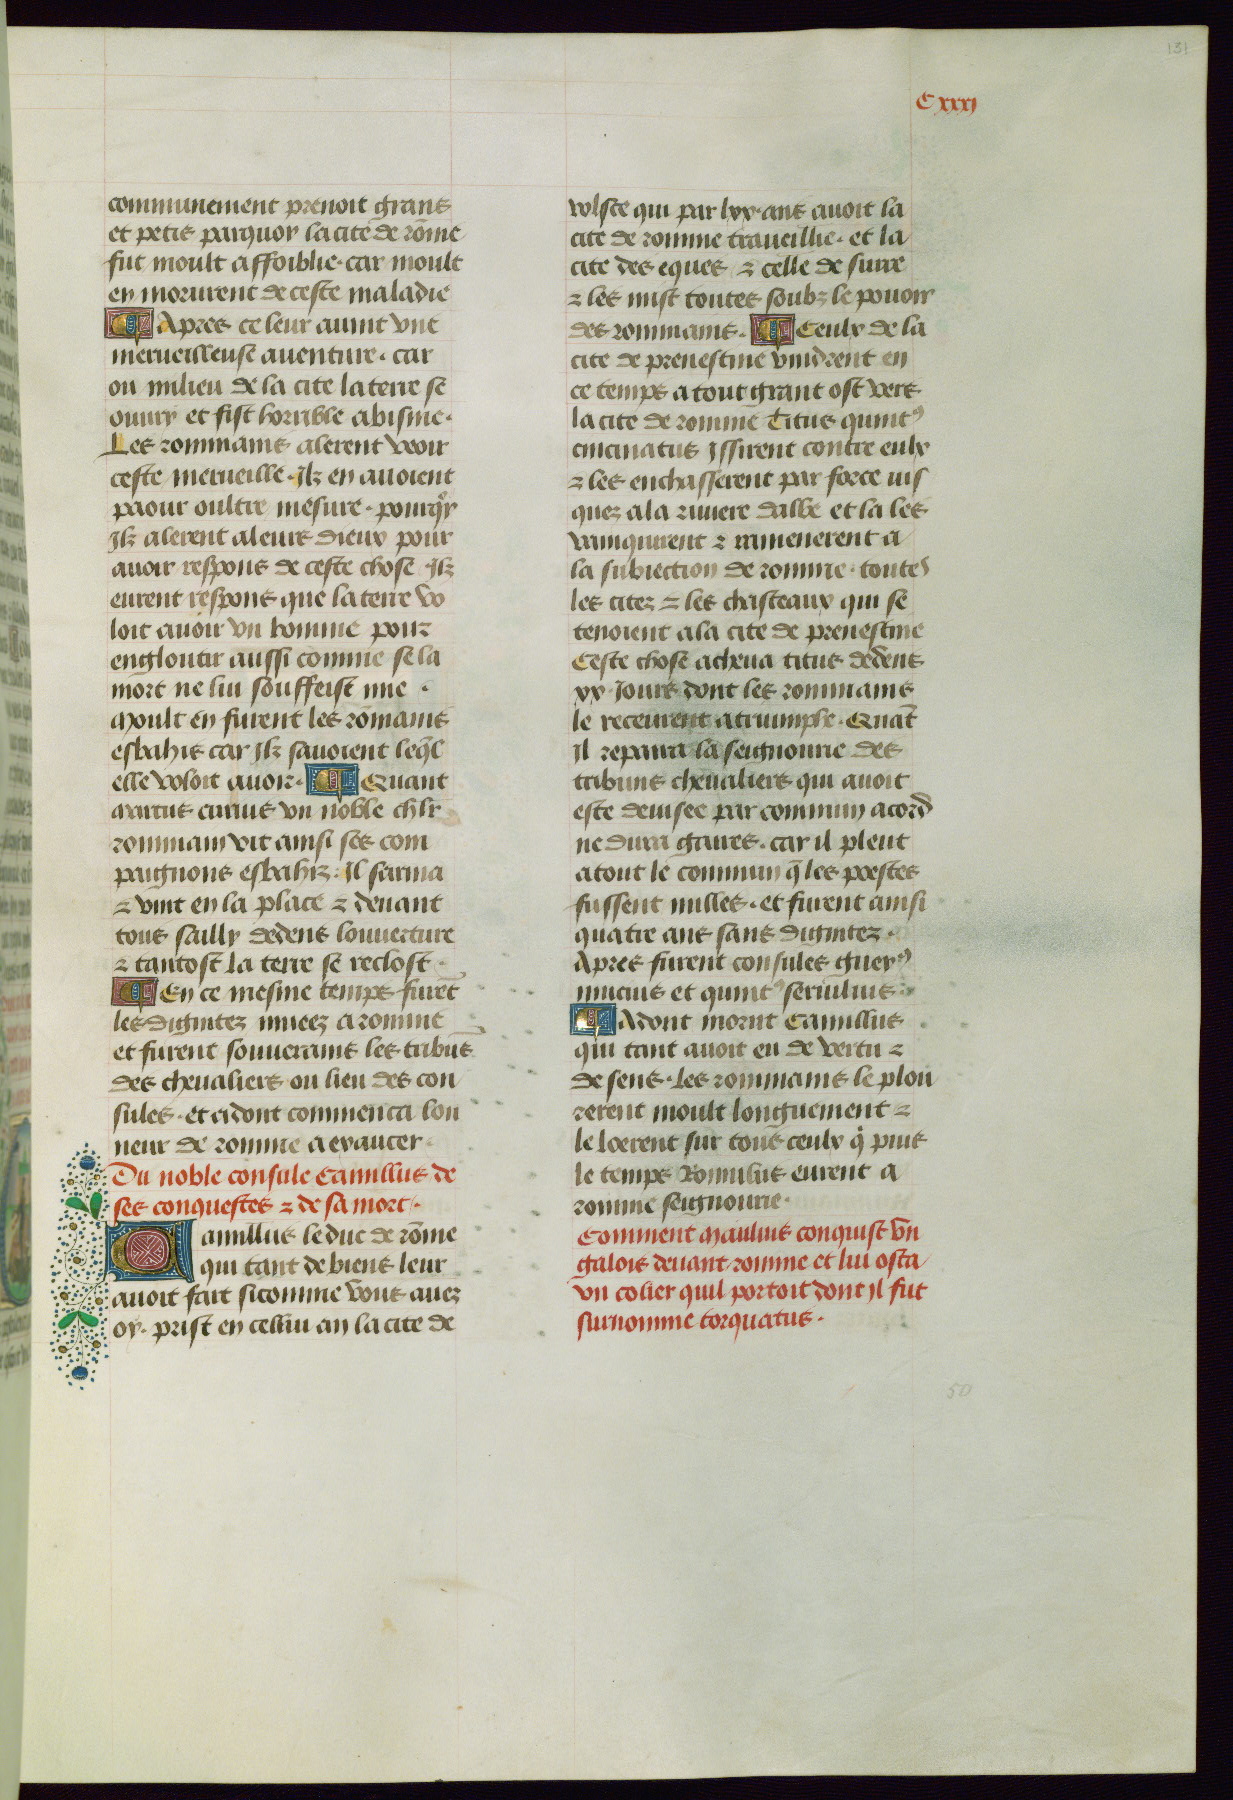 131
C xxxj
communement prenoit grans
et petis parquoy la cite de rōme
fut moult affoiblie · car moult
en morurent de ceste maladie
¶ Apres ce leur auint vne
merueilleuse auenture · car
ou milieu de la cite la terre se
ouury et fist horrible abisme ·
Les rommains alerent veoir
ceste merueille · Ilz en auoient
paour oultre mesure · pourqͦy
Ilz alerent a leurs dieux pour
auoir respons de ceste chose Ilz
eurent respons que la terre vo
loit auoir vn homme pour
engloutir aussi comme se la
mort ne lui souffeist mie ·
Moult en furent les rōmains
esbahis car Ilz sauoient leq̄l
elle voloit auoir · ¶ Quant
Marcus curius vn noble chlr
rommain vit ainsi ses com
paignons esbahiz · Il sarma
⁊ vint en la place ⁊ deuant
tous sailly dedens louuerture
⁊ tantost la terre se reclost ·
¶ En ce mesme temps furēt
les dignitez muees a romme
et furent souuerains les tribūs
des cheualiers ou lieu des con
sules · et adont commenca lon
neur de romme a exaucer ·
Du noble consule Camillus de
ses conquestes ⁊ de sa mort ·
Camillus le duc de rōme
qui tant de biens leur
auoit fait sicomme vous auez
oy · prist en cellui an la cite de
volsce qui par lxx · ans auoit la
cite de romme traueillie · et la
cite des eques ⁊ celle de surre
⁊ les mist toutes soubz le pouoir
des rommains · ¶ Ceulx de la
cite de preuestine vindrent en
ce temps a tout grant ost vers
la cite de romme Titus quintꝰ
cincinatus Issirent contre eulx
⁊ les enchasserent par force ius
quez a la riuiere dalbe et la les
vainquirent ⁊ ramenerent a
la subiection de romme · toutes
les citez ⁊ les chasteaux qui se
tenoient a la cite de preuestine
Ceste chose acheua titus dedens
xx · Jours dont les rommains
le receurent a triumphe · Quāt
il repaira la seignourie des
tribuns cheualiers qui auoit
este deuisee par commun acord
ne dura gaires · car il pleut
a tout le commun q̄ les poestes
fussent nulles · et furent ainsi
quatre ans sans dignitez ·
Apres furent consules gneyꝰ
mucius et quintꝰ seruilius ·
¶ Adont morut Camillus
qui tant auoit eu de vertu ⁊
de sens · Les rommains le plou
rerent moult longuement ⁊
le loerent sur tous ceulx q̇ puis
le temps Romulus eurent a
romme seignourie ·
Comment Maulius conquist vn
galois deuant romme et lui osta
vn colier quil portoit dont Il fut
surnomme torquatus ·
50